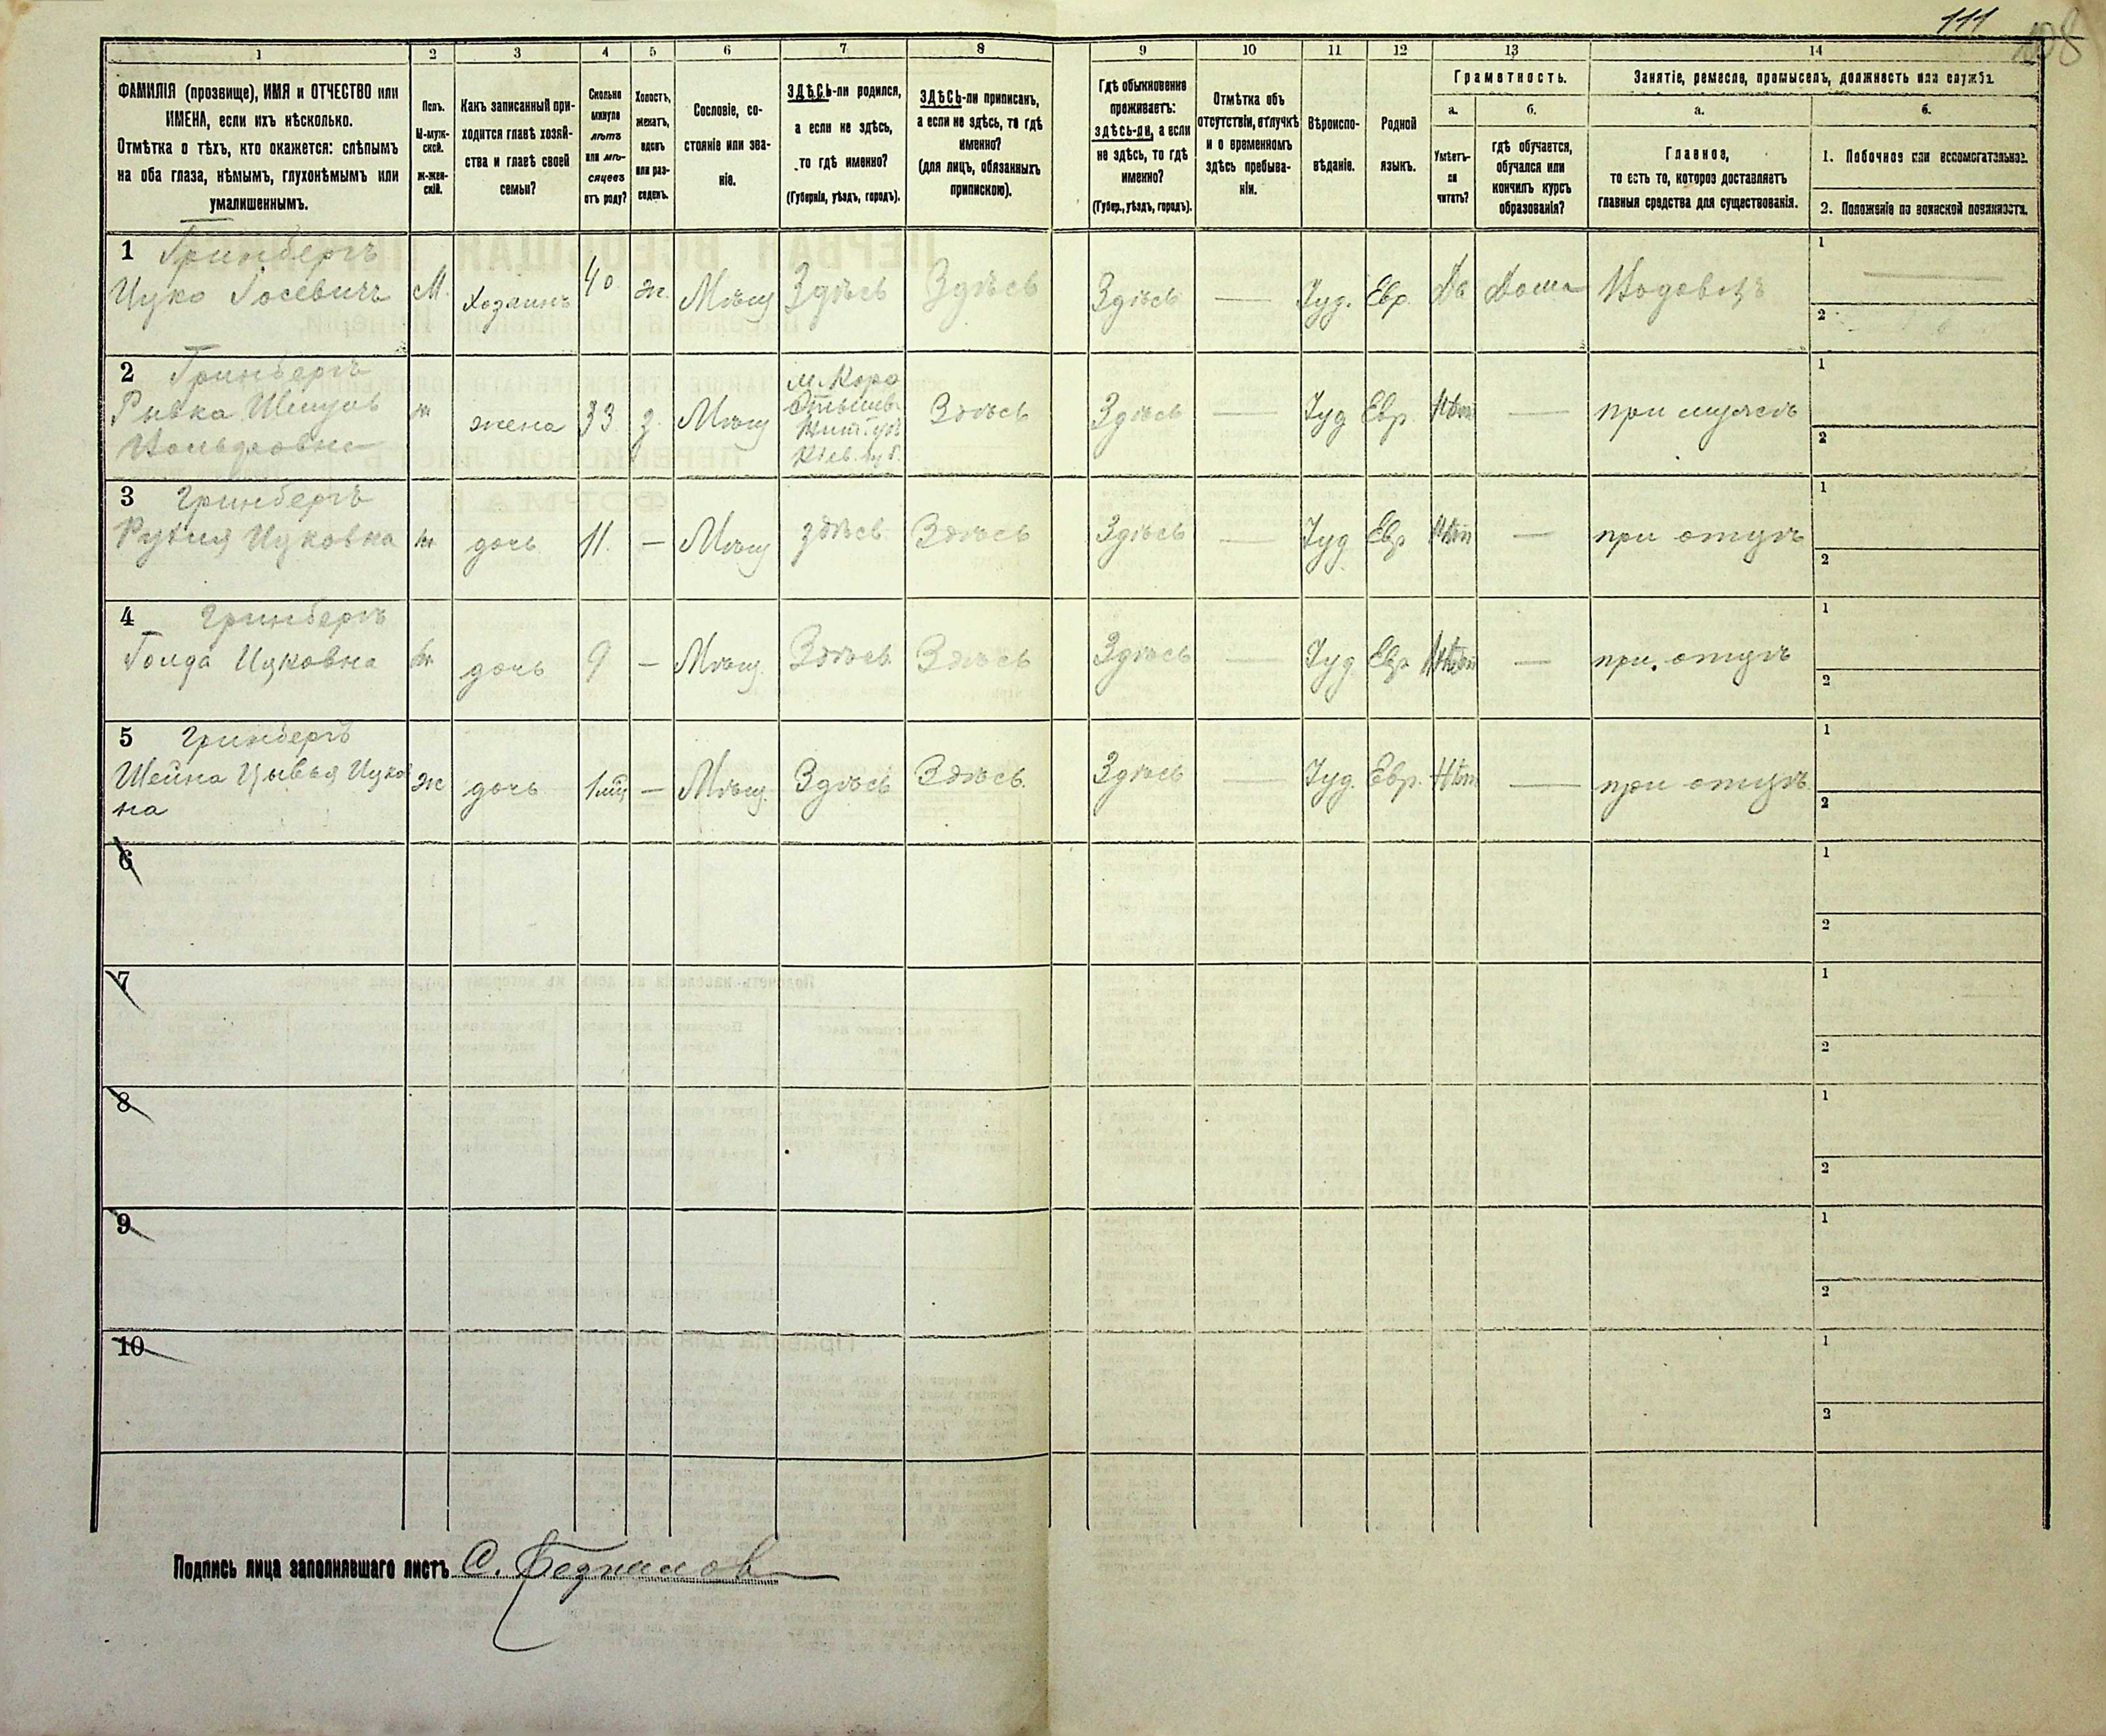 111
108
1
2
3
4
5
6
7
8
9
10
11
12
13
14
ФАМИЛІЯ (прозвище), ИМЯ и ОТЧЕСТВО или
ИМЕНА, если ихъ нѣсколько.
Отмѣтка о тѣхъ, кто окажется: слѣпымъ
на оба глаза, нѣмымъ, глухонѣмымъ или
умалишеннымъ.
Полъ.
М-муж-
ской.
ж-жен-
скій.
Какъ записанный при-
ходится главѣ хозяй-
ства и главѣ своей
семьи?
Сколько
минуло
лѣтъ
или мѣ-
сяцевъ
отъ роду?
Холостъ,
женатъ,
вдовъ
или раз-
веденъ.
Сословіе, со-
стояніе или зва-
ніе.
ЗДѢСЬ-ли родился,
а если не здѣсь,
то гдѣ именно?
(Губернія, уѣздъ, городъ).
ЗДѢСЬ-ли приписанъ,
а если не здѣсь, то гдѣ
именно?
(для лицъ, обязанныхъ
припискою).
Гдѣ обыкновенно
проживаетъ:
здѣсь-ли, а если
не здѣсь, то гдѣ
именно?
(Губер., уѣздъ, городъ).
Отмѣтка объ
отсутствіи, отлучкѣ
и о временномъ
здѣсь пребыва-
ніи.
Вѣроиспо-
вѣданіе.
Родной
языкъ.
Грамотность.
а.
Умѣетъ-
ли
читать?
б.
гдѣ обучается,
обучался или
кончилъ курсъ
образованія?
Занятіе, ремесло, промыселъ, должность или служба.
а.
Главное,
то есть то, которое доставляетъ
главныя средства для существованія.
б.
1. Побочное или вспомогательное.
2. Положеніе по воинской повинности.
1 Гринбергъ
Ицко Іосевичъ М. Хозяинъ 40 ж. Мѣщ Здѣсь Здѣсь Здѣсь — Іуд. Евр. Да Дома Водовозъ
1 —
2
2 Гринбергъ
Ривка
ж жена 33 з. Мѣщ
м. Коро
стышев
Жит. уѣ
Кіев. губ.
Здѣсь Здѣсь — Іуд Евр. Нѣт — при мужѣ
1
2
3 Гринбергъ
Ицковна ж дочь 11. — Мѣщ здѣсь Здѣсь Здѣсь — Іуд Евр Нѣт — при отцѣ
1
2
4 Гринбергъ
Голда Ицковна ж дочь 9 — Мѣщ. Здѣсь Здѣсь Здѣсь — Іуд. Евр Нѣт — при отцѣ
1
2
5 Гринбергъ
Шейна Цывья Ицков
на
ж дочь 1 мѣц — Мѣщ. Здѣсь Здѣсь. Здѣсь — Іуд. Евр. Нѣт — при отцѣ
1
2
6
1
2
7
1
2
8
1
2
9
1
2
10
1
2
Подпись лица заполнявшаго листъ С.